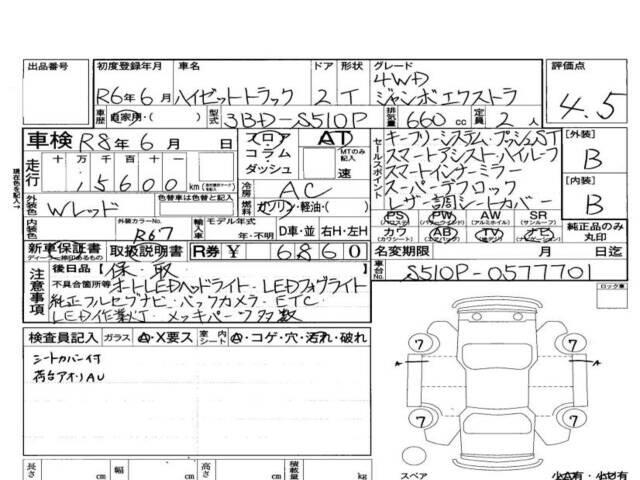 出品番号 初度登録年月 車名 ドア 形状 グレード 評価点
R6年6月 ハイゼットトラック 2 T 4WD ジャンボエクストラ 4.5
車歴 自家用・( ) 型式 3BD-S510P 排気量 660cc 定員 2人
車検 R8年6月 日 フロア AT セールスポイント キーフリーシステム・プッシュST [外装]
現在色を記入→ 走行 十 万 千 百 十 コラム MTのみ記入 スマートアシスト・ハイルーフ B
15600 km ダッシュ 速 スマートインナーミラー
外装色 Wレッド 色替車は色替と記入 冷房 AC スーパーデフロック [内装]
燃料 ガソリン・軽油・( ) レザー調シートカバー B
内装色 外装カラーNo. R67 輸入車 モデル年式 年・不明 D車・並 右H・左H
PS (パワステ) PW (パワーウィンド) AW (アルミホイル) SR (サンルーフ) 純正品のみ丸印
カワ (カワシート) AB (エアバック) TV ナビ
新車保証書 取扱説明書 R券 ¥ 6860 名変期限 月 日迄
車台No. S510P-0577701
注意事項 後日品 保・取
不具合箇所等 オートLEDヘッドライト・LEDフォグライト
純正フルセグナビ・バックカメラ・ETC
LED作業灯・メッキパーツ多数
ロック車
検査員記入 ガラス A・X要ス 室内シート A・コゲ・穴・汚れ・破れ
シートカバー付
荷台アオリAU
A A
7 7
7 7
スペア
長さ cm 幅 cm 高さ cm 積載量 kg